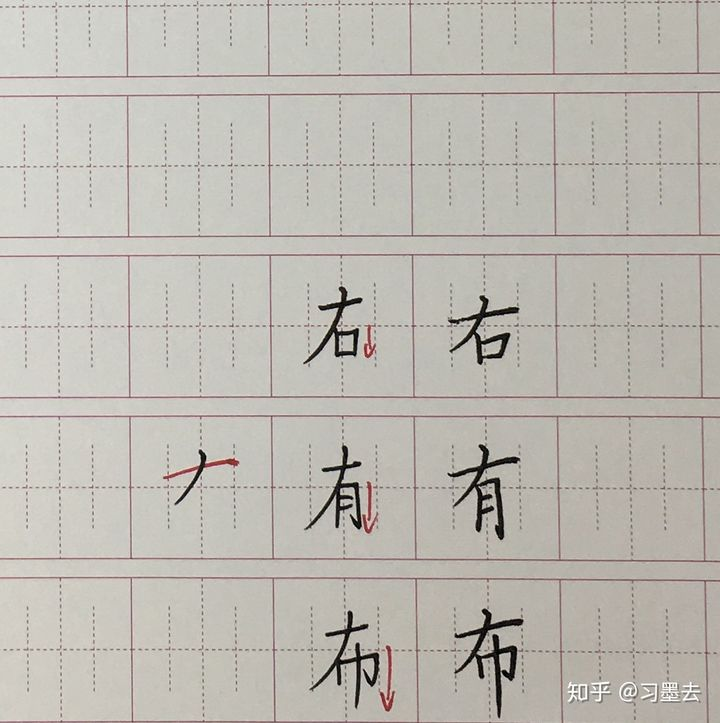 右 右
𠂇 有 有
布 布
知乎 @习墨去